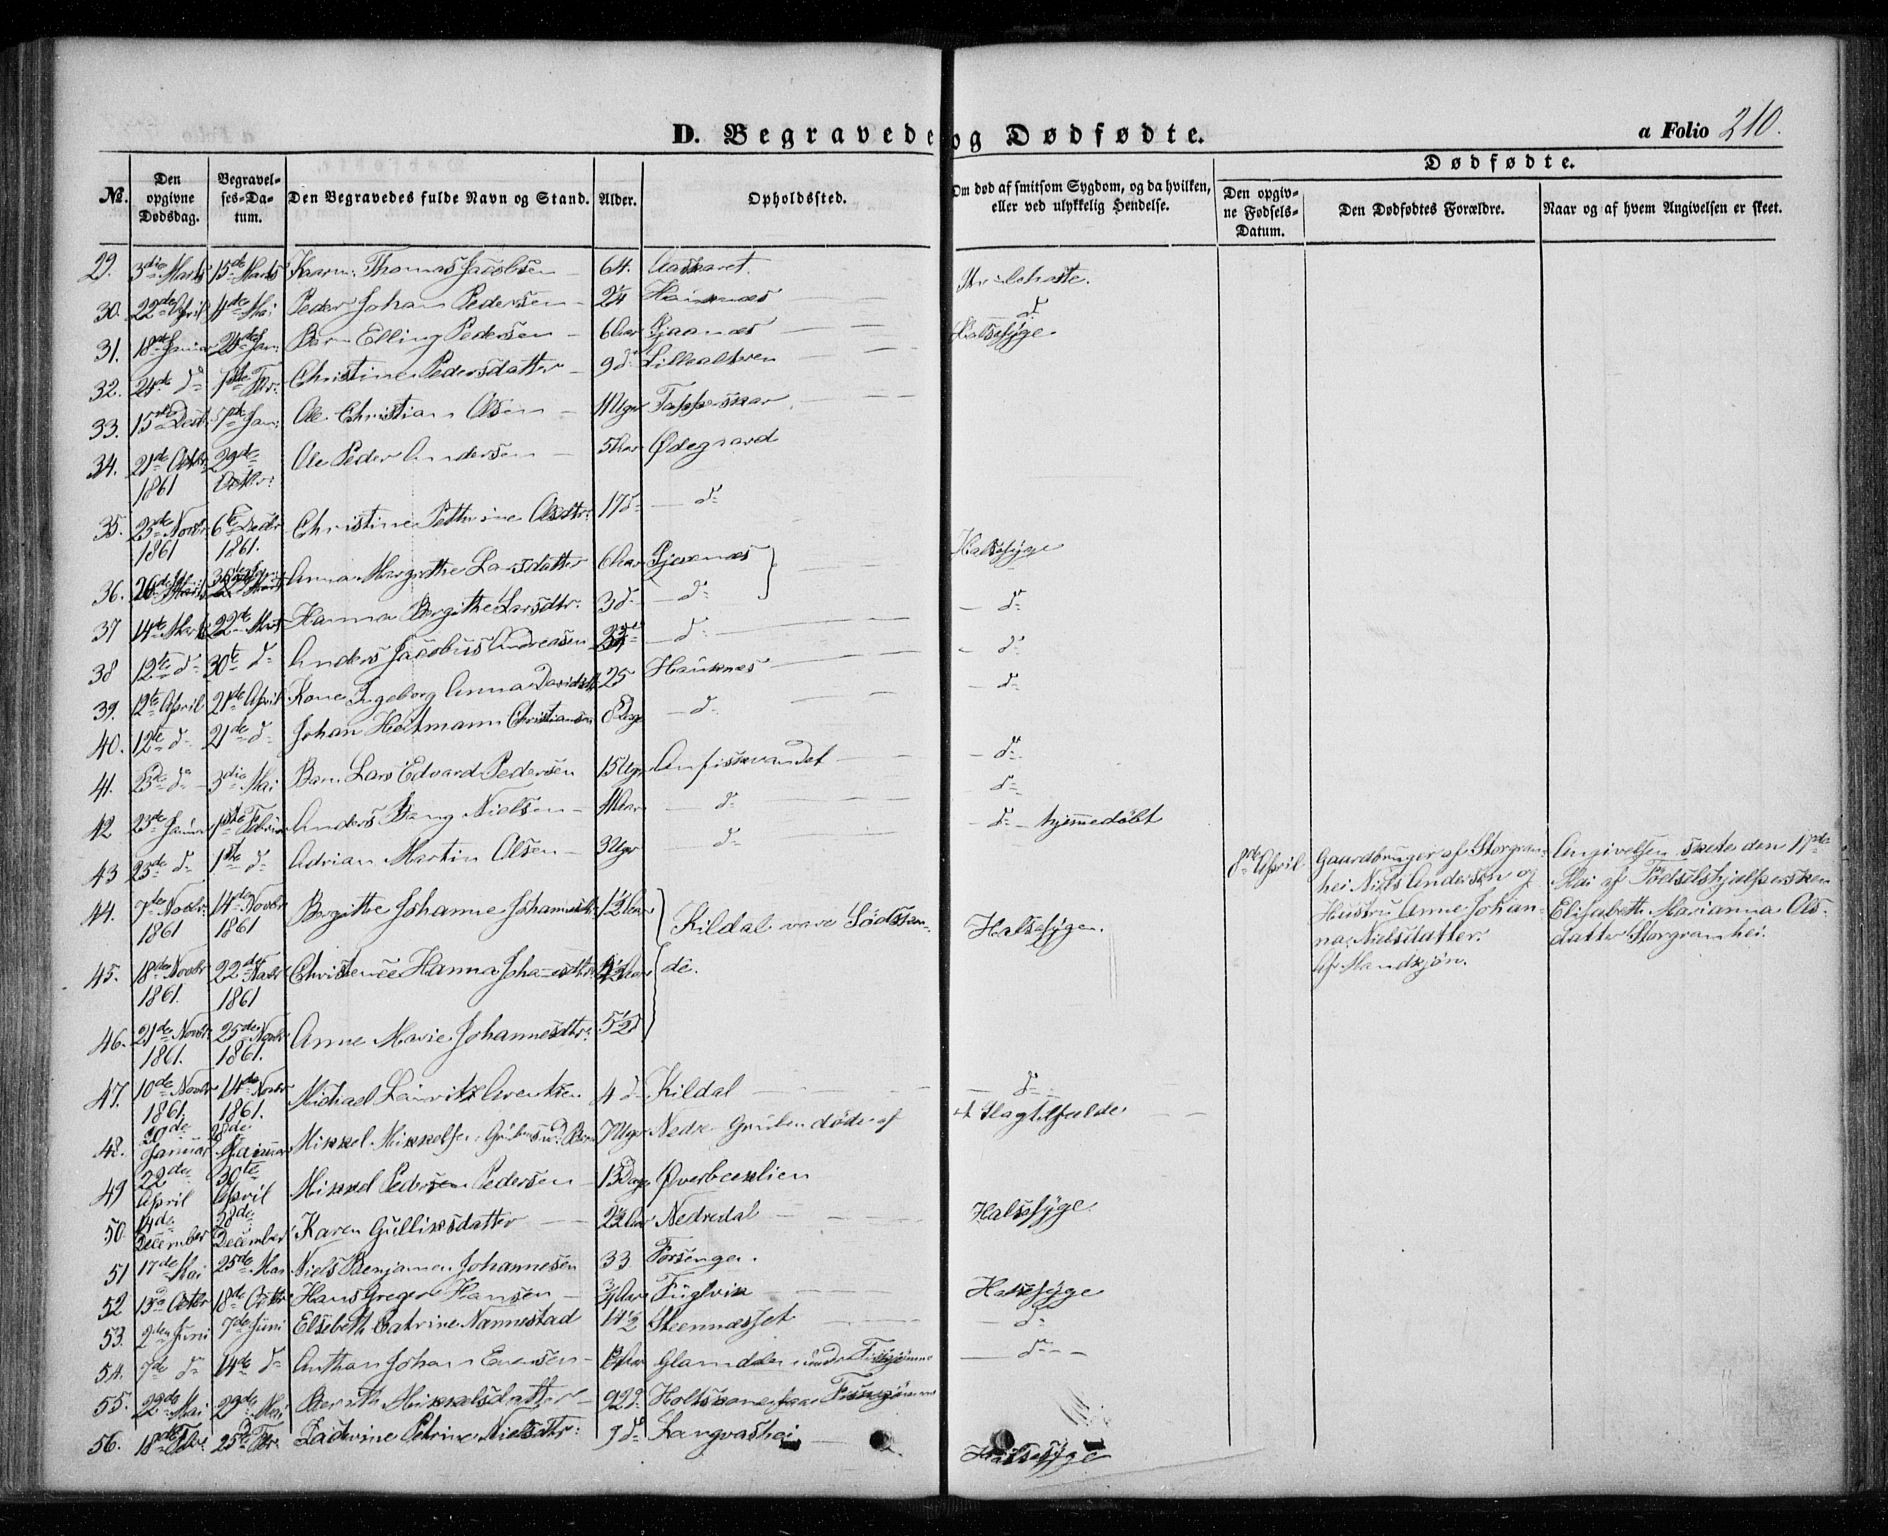 D. Begravede og Dødfødte.
a Folio 210.
Dødfødte.
No. Den opgivne Dødsdag. Begravelses-Datum. Den Begravedes fulde Navn og Stand. Alder. Opholdssted. Om død af smitsom Sygdom, og da hvilken, eller ved ulykkelig Hendelse. Den opgivne Fødsels-Datum. Den Dødfødtes Forældre. Naar og af hvem Angivelsen er skeet.
29. 3die Marts 15de Marts Thomas Jacobsen 64.
30. 22de April 4de Mai Peder Johan Pedersen 24 d
31. 18de Januar Barn Elling Pedersen 6 Aar Halssyge
32. 24de d 1ste Febr: Christine Pedersdatter 9 d Lillealteren
33. 15de 7de Jan: Ole Christian Olsen 11 Uger Tapperskar
34. 21de Octbr 1861 29de Octbr: Ole Peder Andersen 5 Aar Ødegaard
35. 23de Novbr 1861 6te Decbr 1861. Christine Pethrine Olsdtr: 17 d d
36. Anna Margrethe Larsdatter 6 Aar Halssyge
37 14de Marts 22de Marts Hanna Bergithe Larsdtr. 3 d d d
38 12te d 30te d Anders Jacobus Andreasen d d
39. 12te April 21de April Kone Ingeborg Anna Davidsdtr 25 Hauknes d
40. 12te d 21de d Johan Hartmann Christiansen 8 Dage d
41. 23de d 3die Mai Barn Lars Edvard Pedersen 15 Uger Anfiskvandet d
42 23de Januar 1ste Februar Anders Bang Nielsen 11 Aar d d
43 25de d 1ste d Adrian Martin Olsen 3 Uger d d hjemmedøbt
44. 7de Novbr. 1861 14de Novbr 1861 Bergitte Johanne Johannesdtr 1½ Aar Kildal vare Sødsken- Halssygen.
45. 18de Novbr 1861. 22de Novbr 1861 Christence Hanna Johannesdtr: Aar de.
46. 21de Novbr 1861. 25de Novbr 1861. Anne Marie Johannesdtr: 5½ d
8de April Gaardbruger af Storgran-
hei Niels Andersen og
Hustru Anne Johan-
na Nielsdatter.
Af Mandkjøn.
Angivelsen skete den 17de
Mai af Fødselshjælpersken
Elisabeth Marianna Ols-
datter Storgranhei.
47. 10de Novbr 1861. 14de Novbr 1861. Michael Lauritz Arentsen 4 d Kildal d
48. 20de Januar 28de Januar Mikkel Mikkelsen Barn 7 Uger Nedre Gruben døde af Slagtilfælde
49 22de April 30te April Mikkel Pedersen Pedersen 13 Dage Øverbæklien
50. 14de December 28de December Karen Gulliksdatter 2½ Aar Nedredal Halssyge
51 17de Mai 25de Mai Niels Benjamin Johannesen 33 Forsengen.
52 13de Octbr 18de Octbr Hans Greger Hansen ¾ Aar Fuglvik Halssyge
53. 2den Juni 7de Juni Elsebeth Catrine Nannestad 14½ Steennæsset d
54. 7de d 14de d Anthon Johan Evensen d
55. 22de Mai 29de Mai Berith Mikkelsdatter 92 d
56. 18de Febr. 25de Febr. Petrine Nielsdtr: 9 d Langvashei Halssyge